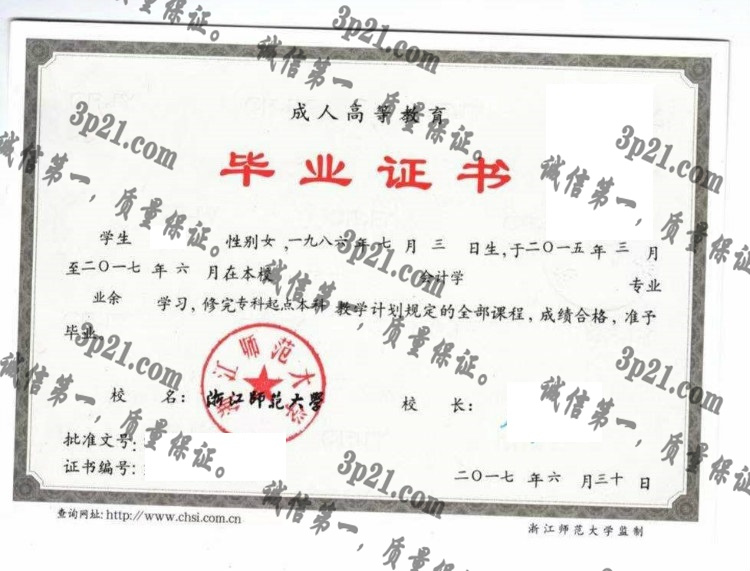 成人高等教育
毕业证书
学生 性别女,一九八六年七月三日生,于二〇一五年三月
至二〇一七年六月在本校 会计学 专业
业余 学习,修完专科起点本科 教学计划规定的全部课程,成绩合格,准予
毕业。
浙江师范大学
校 名: 浙江师范大学 校 长:
批准文号:
证书编号:
二〇一七年六月三十日
查询网址: http://www.chsi.com.cn
浙江师范大学监制
3p21.com
诚信第一,质量保证。
3p21.com
诚信第一,质量保证。
3p21.com
诚信第一,质量保证。
3p21.com
诚信第一,质量保证。
3p21.com
诚信第一,质量保证。
3p21.com
诚信第一,质量保证。
3p21.com
诚信第一,质量保证。